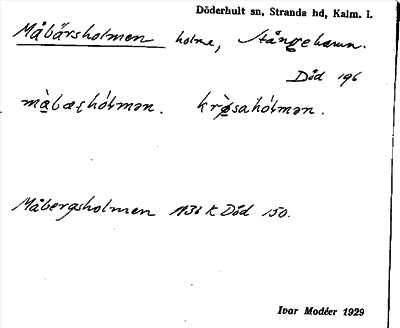 Döderhult sn, Stranda hd, Kalm. l.
Måbärsholmen holme, Stångehamn.
Död 196
mὰbæʂhólmən. krø̀sahólmən.
Måbergsholmen 1736 K Död 150.
Ivar Modéer 1929